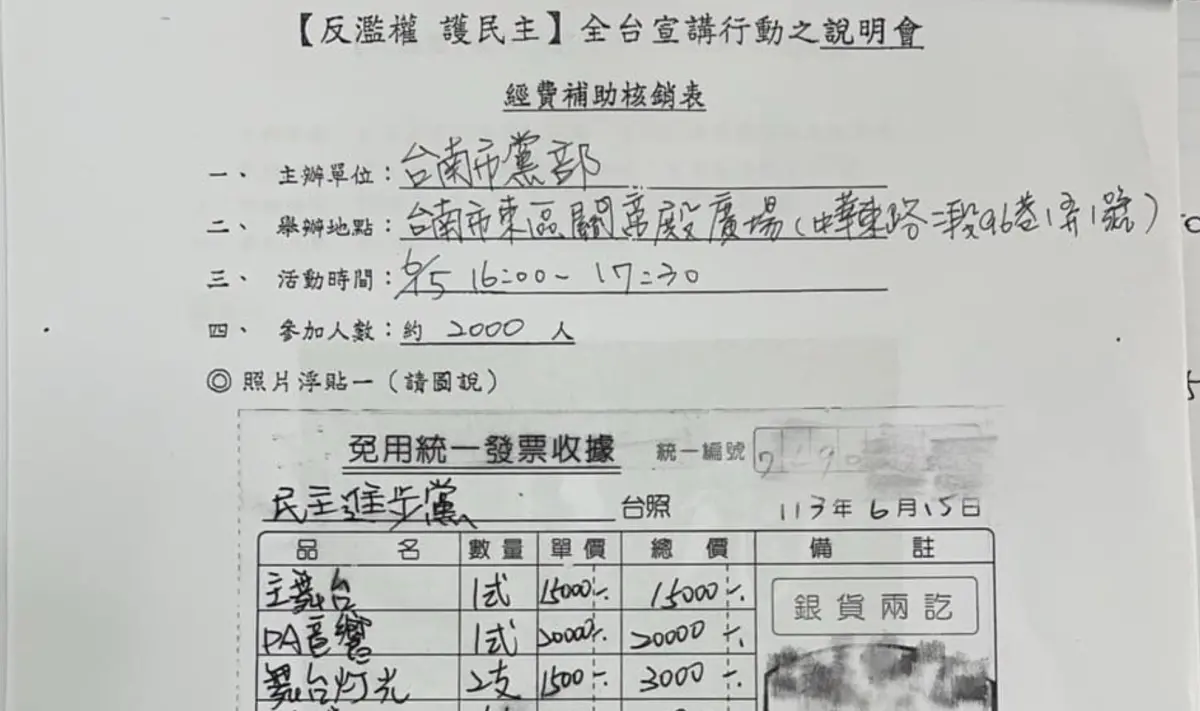 【反濫權 護民主】全台宣講行動之說明會
經費補助核銷表
一、 主辦單位：台南市黨部
二、 舉辦地點：台南市東區關帝殿廣場（中華東路二段96巷1弄1號）
三、 活動時間：6/15 16:00~ 17:30
四、 參加人數：約 2000 人
◎ 照片浮貼一（請圖說）
免用統一發票收據 統一編號
民主進步黨 台照 113年6月15日
品 名 數量 單價 總 價 備 註
主舞台 1式 15000 15000
PA音響 1式 20000 20000
舞台灯光 2支 1500 3000
銀貨兩訖